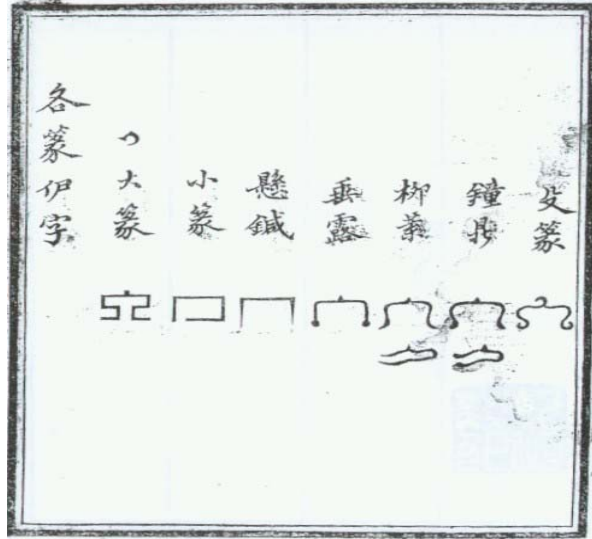 殳篆
鐘鼎
柳葉
垂露
懸鍼
小篆
大篆
各篆伊字